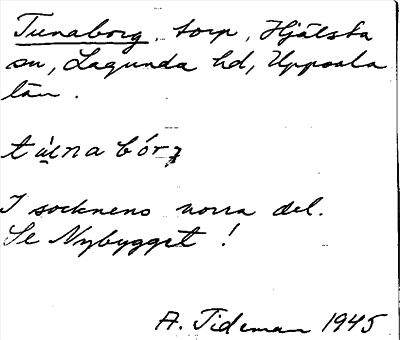 Tunaborg, torp, Hjälsta
sn, Lagunda hd, Uppsala
län.
tùna bórʒ
I socknens norra del.
Se Nybygget!
A. Tideman 1945